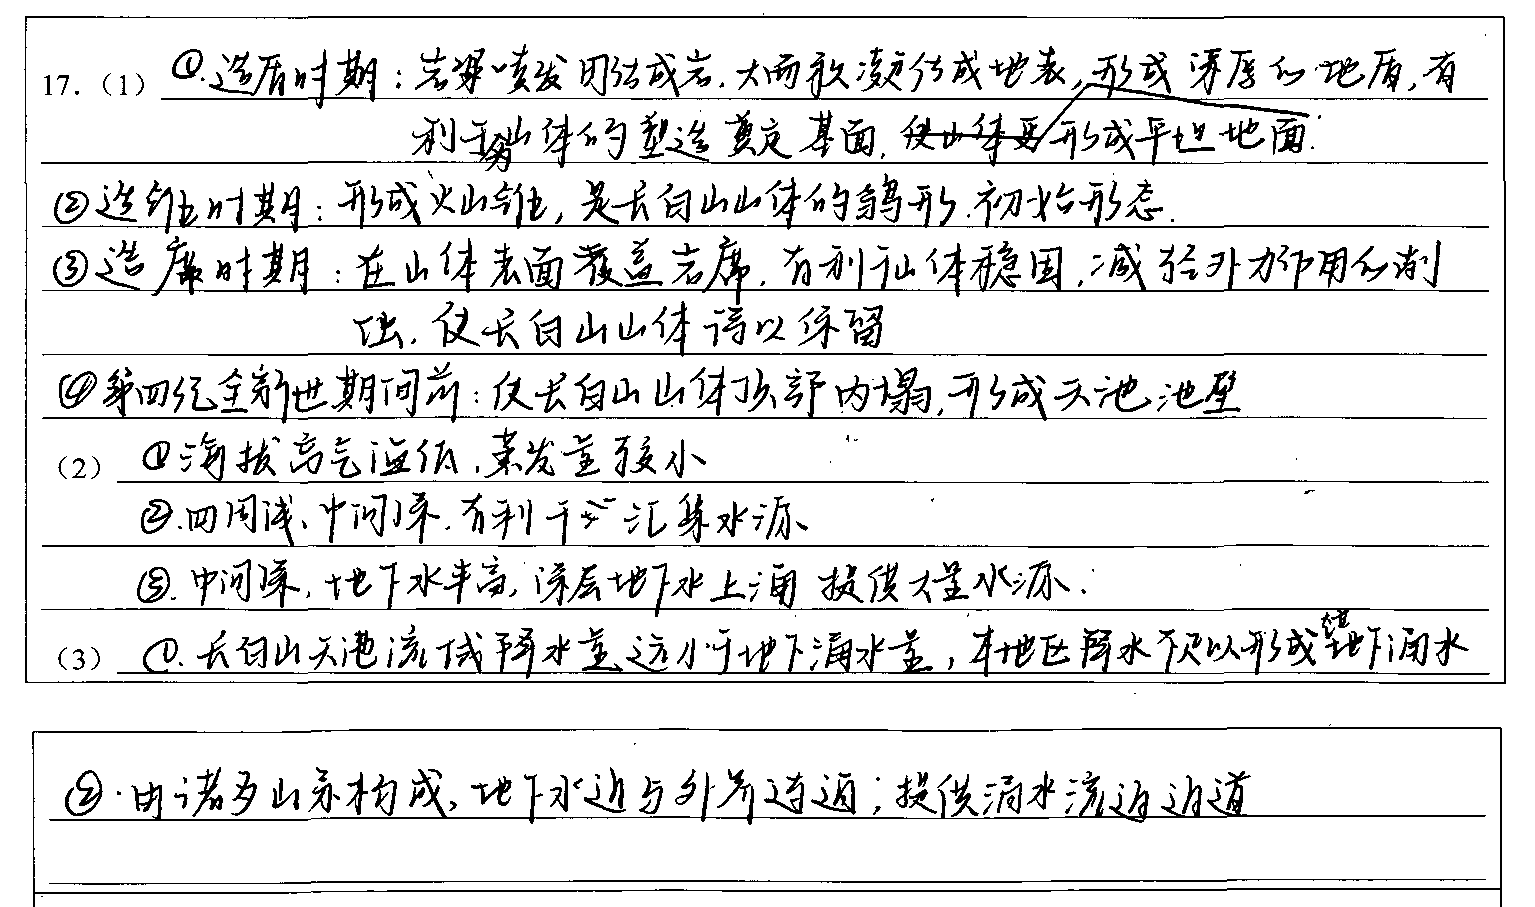 17.（1）①.造盾时期：岩浆喷发固结成岩.大面积凝结成地表,形成深厚的地盾,有
利于为山体的塑造奠定基面,使山体要形成平坦地面.
②造锥时期：形成火山锥,是长白山山体的雏形.初始形态.
③造席时期：在山体表面覆盖岩席,有利于山体稳固,减轻外力作用的削
蚀.使长白山山体得以保留
④第四纪全新世期间前：使长白山山体顶部内塌,形成天池池壁
（2）①海拔高气温低,蒸发量较小
②.四周浅、中间深.有利于汇集水源、
③.中间深,地下水丰富,深层地下水上涌提供大量水源.
（3）①.长白山天池流域降水量远小于地下涌水量,本地区降水不足以形成地下涌水
②.由诸多山系构成,地下水道与外界连通;提供涌水流通通道